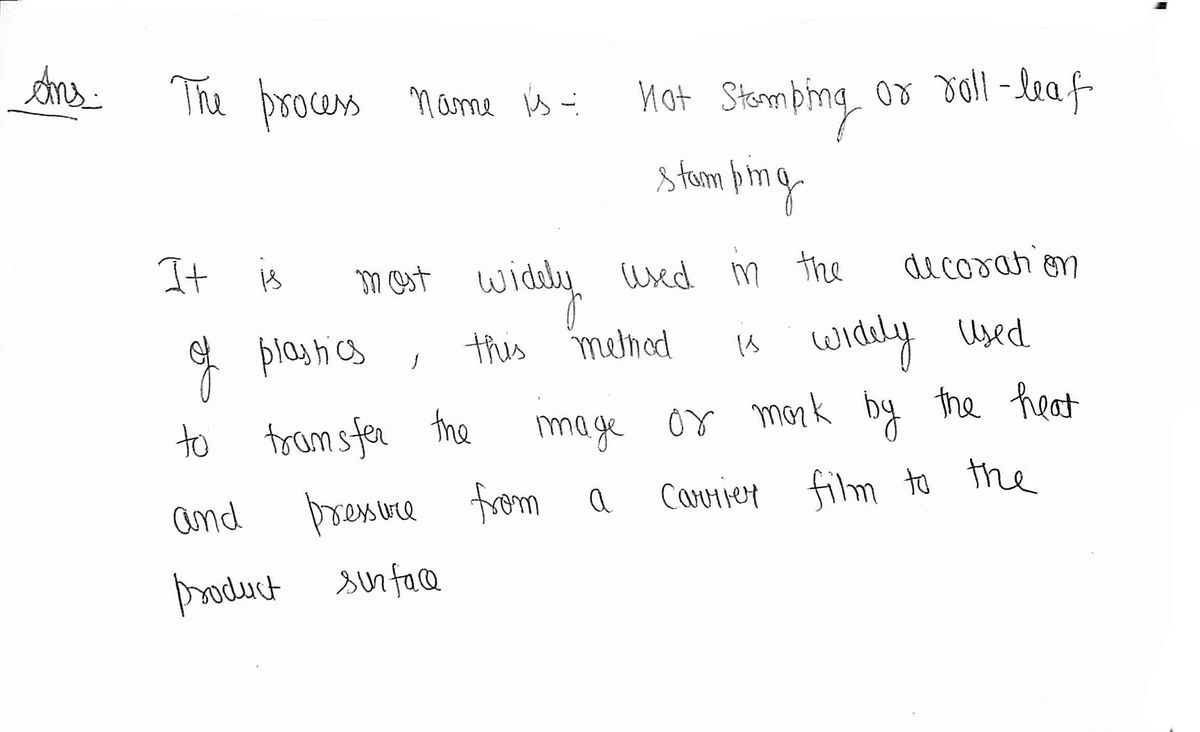 Ans:  The process name is -: Hot Stamping or roll-leaf
stamping
It is most widely used in the decoration
of plastics , this method is widely used
to transfer the image or mark by the heat
and pressure from a carrier film to the
product surface